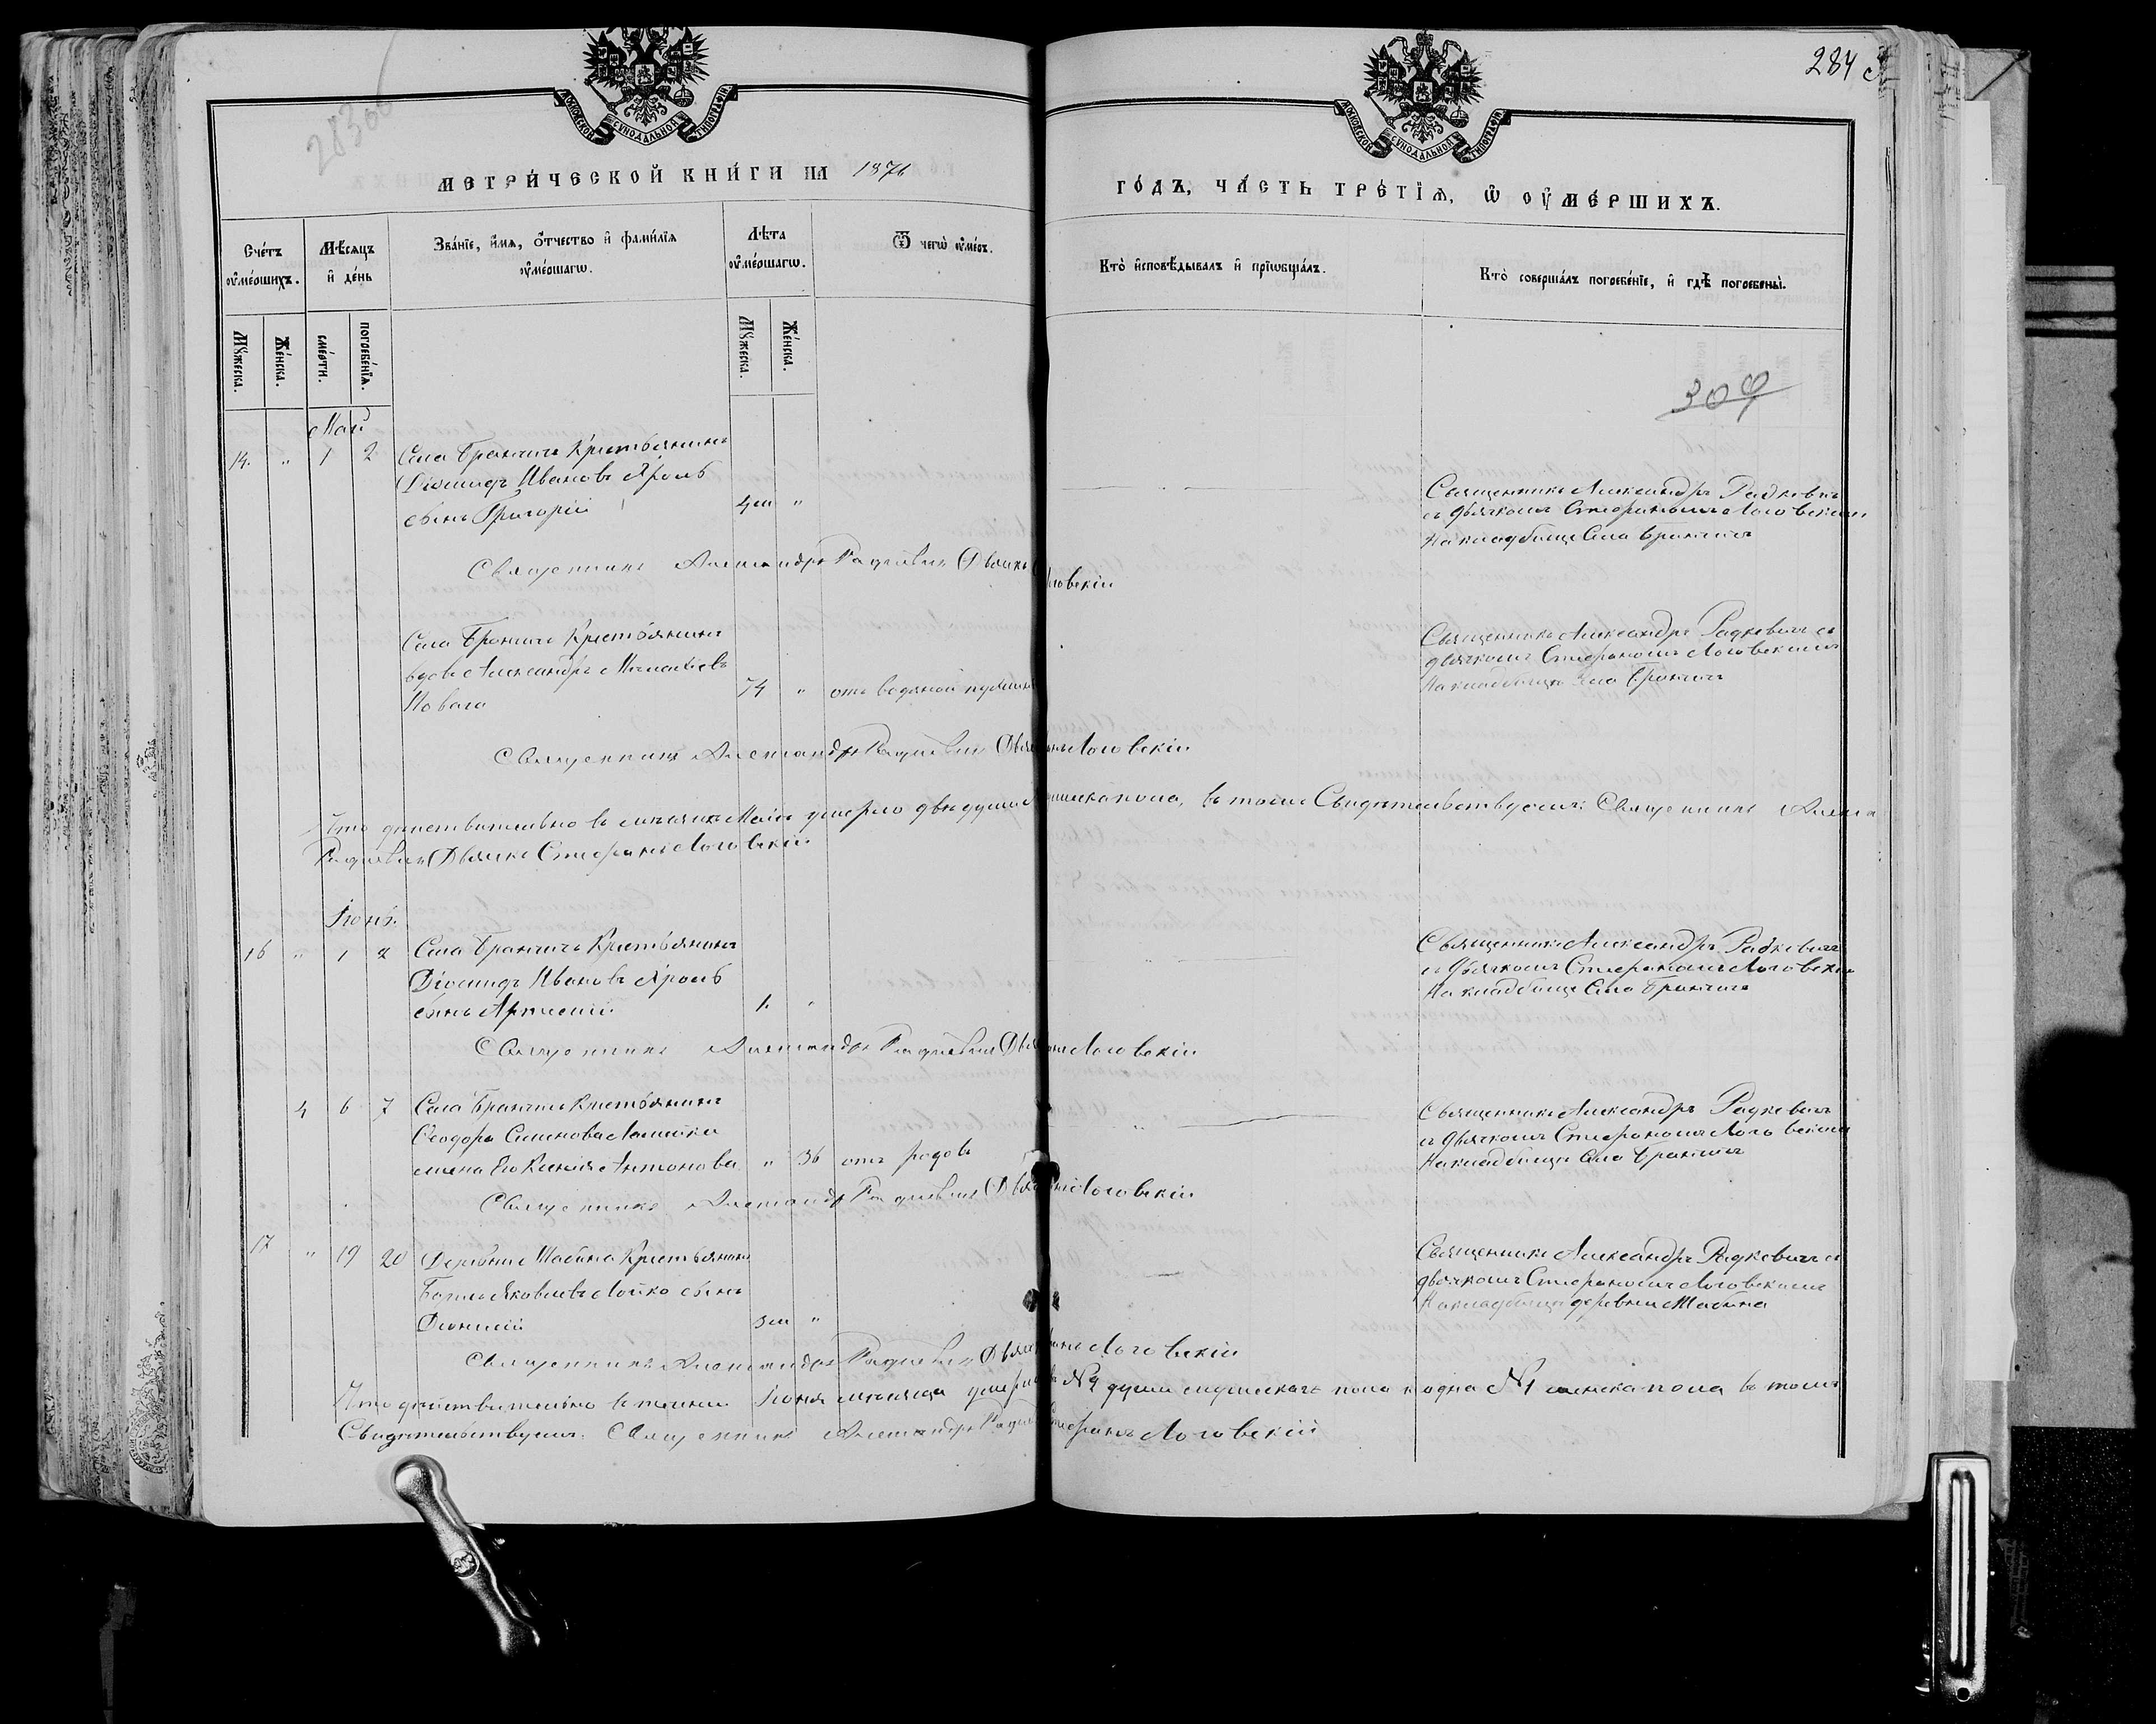 284
МОСКОВСКОЙ СѴНОДАЛЬНОЙ ТИПОГРАФІИ
МОСКОВСКОЙ СѴНОДАЛЬНОЙ ТИПОГРАФІИ
МЕТРИ́ЧЕСКОЙ КНИ́ГИ НА 1876
ГО́ДЪ, ЧА́СТЬ ТРЕ́ТІѦ, Ѡ ОУ҆МЕ́РШИХЪ.
Сче́тъ оу҆ме́ршихъ.
Мѣ́сѧцъ и҆ де́нь
Зва́нїе, и҆́мѧ, ѻ҆́тчество и҆ фами́лїѧ оу҆ме́ршагѡ.
Лѣ́та оу҆ме́ршагѡ.
Ѿ чегѡ̀ оу҆́меръ.
Кто̀ и҆сповѣ́дывалъ и҆ прїѡбща́лъ.
Кто̀ соверша́лъ погребе́нїе, и҆ гдѣ̀ погребены̀.
Мꙋ́жеска.
Же́нска.
сме́рти.
погребе́нїѧ.
Мꙋ́жеска.
Же́нска.
309
Май
14. " 1 2 Села Бранчичъ Крестьянина
Діомидъ Ивановъ Яромъ
сынъ Григорій 4 м "
Священникъ Александръ Радкевичъ
съ дьячкомъ Стефаномъ Логовскимъ
На кладбище Села Бранчичъ
Священникъ Александръ Радкевичъ Дьячкъ Логовскій
Села Бранчичъ Крестьянинъ
вдовъ Александръ
Коваль 74 " отъ водяной
Священникъ Александръ Радкевичъ съ
дьячкомъ Стефаномъ Логовскимъ
На кладбищѣ Села Бранчичъ
Священникъ Александръ Радкевичъ Дьячкъ Логовскій
Что дѣйствительно въ мѣсяцѣ Маѣ умерло двѣ души мужеска пола, въ томъ Свидѣтельствуемъ: Священникъ
Радкевичъ Дьячкъ Стефанъ Логовскій
Іюнь.
16 " 1 2 Села Бранчичъ Крестьянина
Діомидъ Ивановъ Яромъ
сынъ Артемій 1. "
Священникъ Александръ Радкевичъ
съ дьячкомъ Стефаномъ Логовскимъ
На кладбище Села Бранчичъ
Священникъ Александръ Радкевичъ Дьячкъ Логовскій
4 6 7 Села Бранчичъ Крестьянина
Ѳеодора Семенова
жена Его Ксенія Антонова " 36 отъ родовъ
Священникъ Александръ Радкевичъ
съ дьячкомъ Стефаномъ Логовскимъ
На кладбищѣ Села Бранчичъ
Священникъ Александръ Радкевичъ Дьячкъ Логовскій
17 " 19 20 Деревни Жабина Крестьянина
Яковлевъ Лойко сынъ
Діонисій 3 м "
Священникъ Александръ Радкевичъ съ
дьячкомъ Стефаномъ Логовскимъ
На кладбищѣ деревни Жабина
Священникъ Александръ Радкевичъ Дьячкъ Логовскій
Что дѣйствительно въ теченіи Іюня мѣсяца умерло № 2 души мужеска пола и одна № 1 женска пола въ томъ
Свидѣтельствуемъ: Священникъ Александръ Стефанъ Логовскій